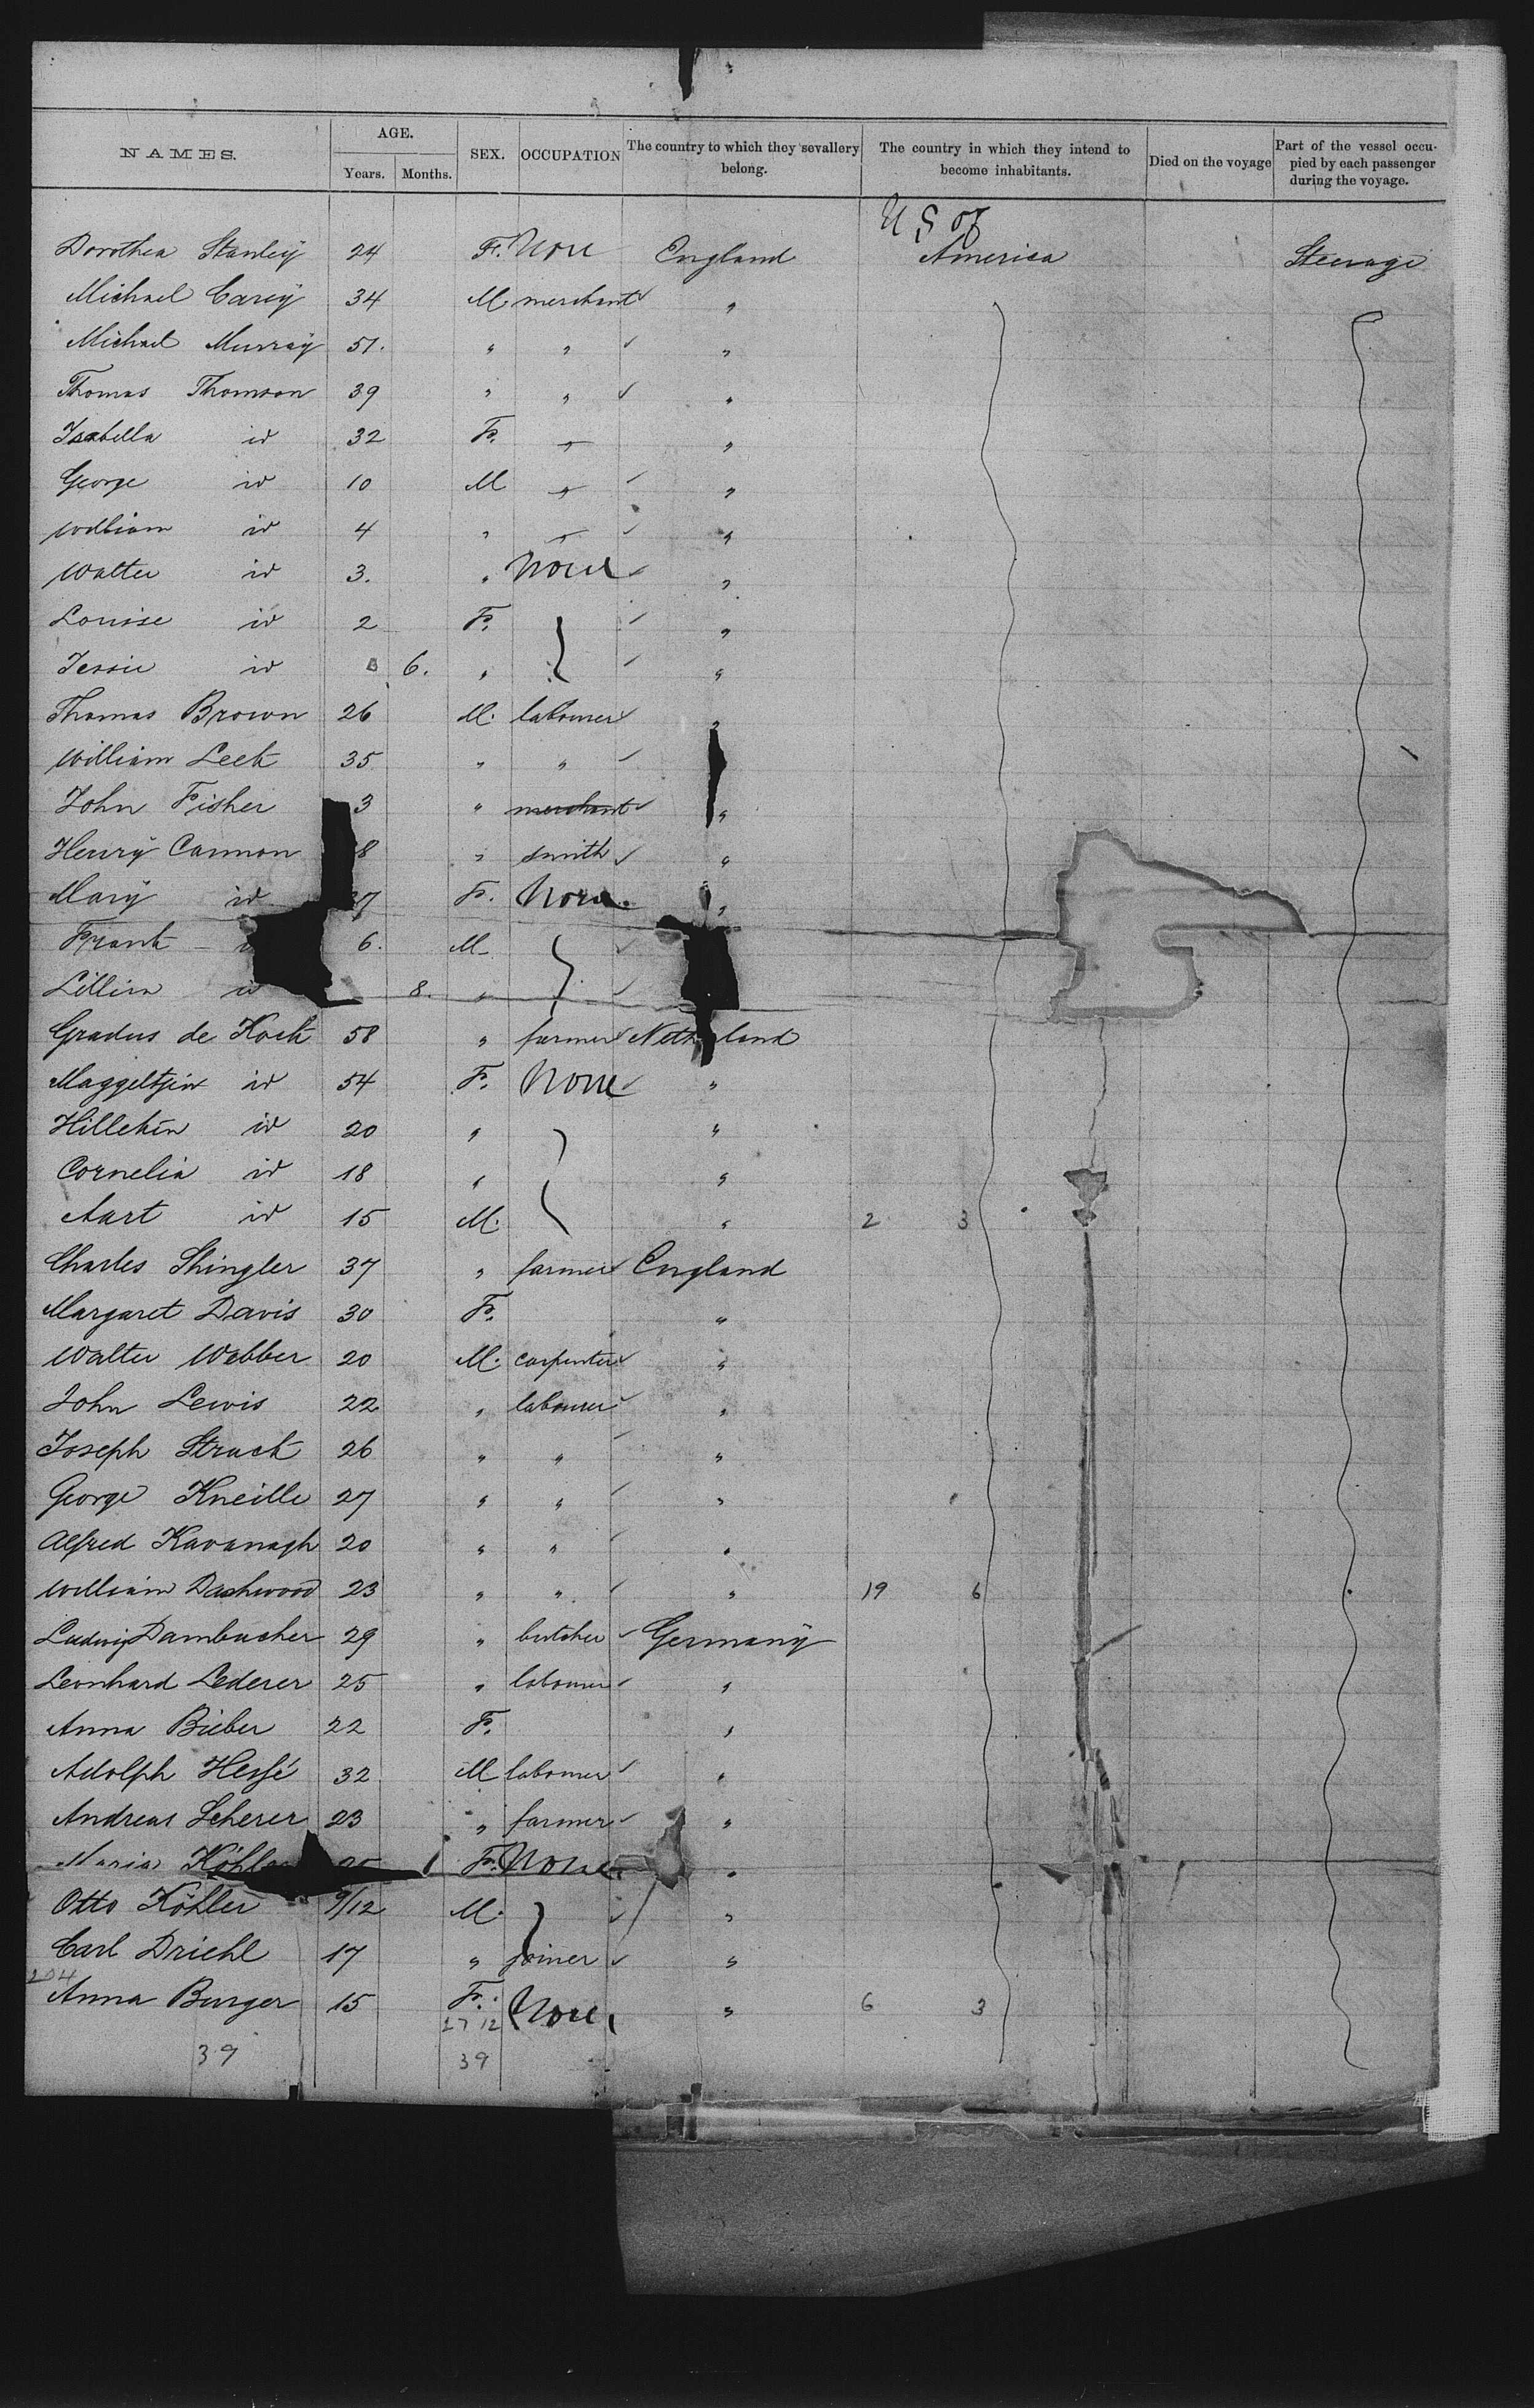 NAMES. AGE. SEX. OCCUPATION The country to which they sevallery belong. The country in which they intend to become inhabitants. Died on the voyage Part of the vessel occupied by each passenger during the voyage.
Years. Months.
U S of
Dorothea Stanley 24 F. None England America Steerage
Michael Carey 34 M. merchant "
Michael Murray 51. " " "
Thomas Thomson 39 " " "
Isabella id 32 F. " "
George id 10 M " "
William id 4 " " "
Walter id 3. " None "
Louise id 2 F. "
Jessie id 6. " "
Thomas Brown 26 M. labourer "
William Leek 35 " " "
John Fisher 3 " merchant "
Henry Cannon 8 " smith "
Mary id 7 F. None "
Frank 6. M
Lillian id 8. "
Gradus de Kock 58 " farmer Netherland
Maggeltjin id 54 F. None "
Hillekin id 20 " "
Cornelia id 18 " "
Aart id 15 M. " 2 3
Charles Shingler 37 " farmer England
Margaret Davis 30 F. "
Walter Webber 20 M. carpenter "
John Lewis 22 " labourer "
Joseph Struck 26 " " "
George Kneille 27 " " "
Alfred Kavanagh 20 " " "
William Dashwood 23 " " " 19 6
Ludwig Dambacher 29 " butcher Germany
Leonhard Lederer 25 " labourer "
Anna Bieber 22 F. "
Adolph Hessé 32 M labourer "
Andreas Scherer 23 " farmer "
Maria Köhler F. None "
Otto Köhler 9/12 M. "
Carl Driehl 17 " joiner "
204
Anna Burger 15 F. None " 6 3
27 12
39 39